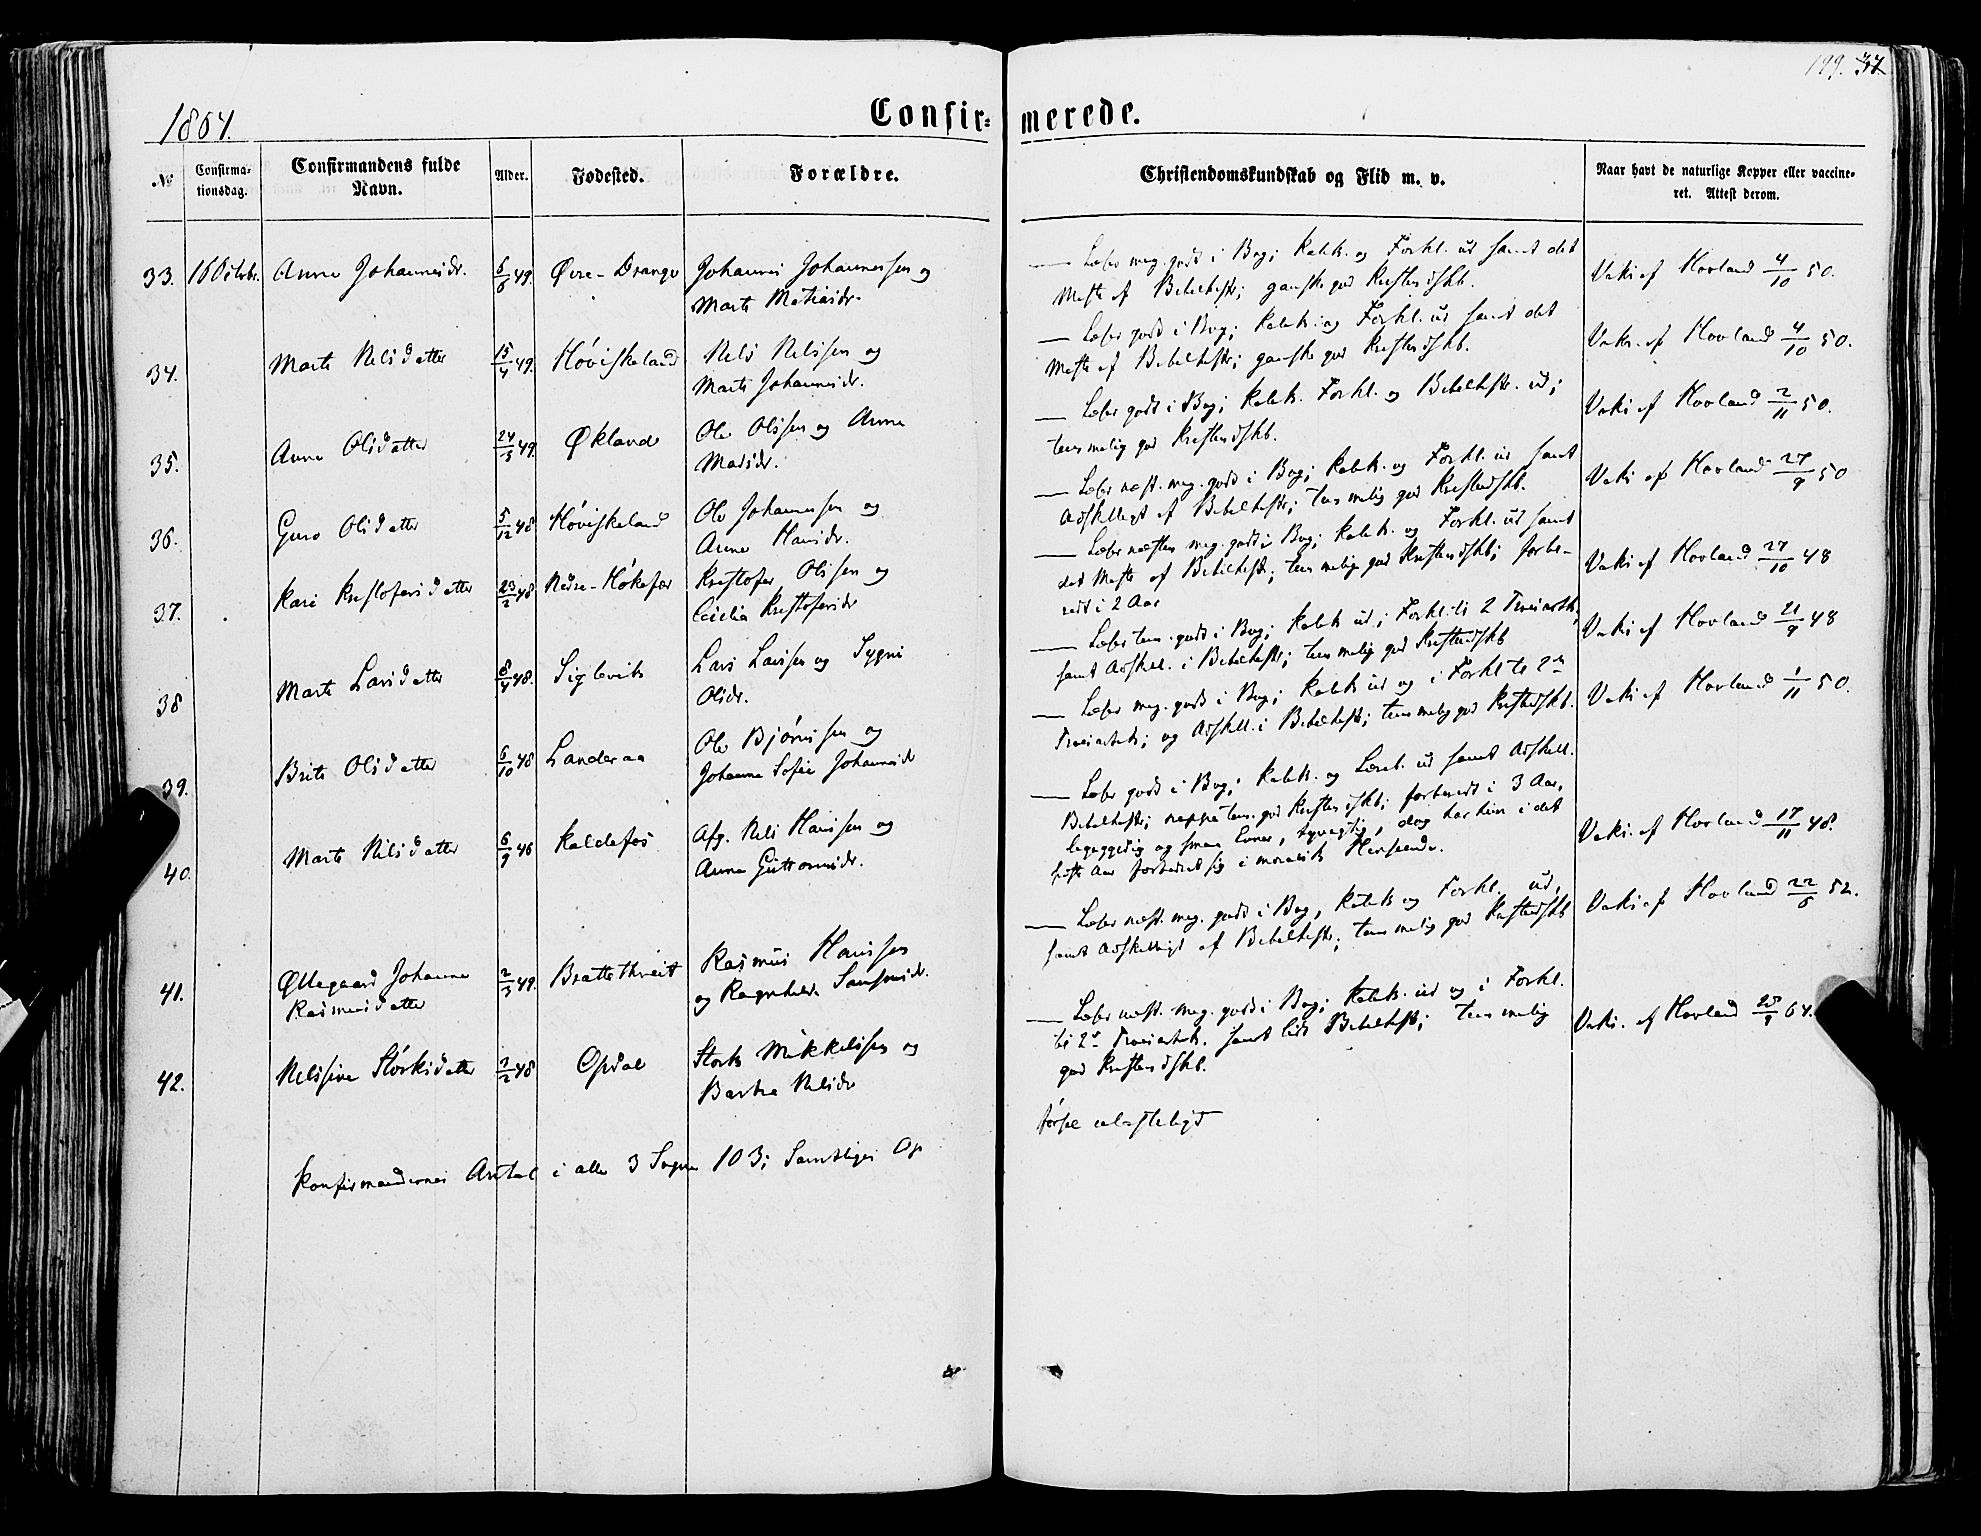 199. 37
1864.
Confir= merede.
No
Confirma-
tionsdag.
Confirmandens fulde
Navn.
Alder.
Fødested.
Forældre.
Christendomskundskab og Flid m. v.
Naar havt de naturlige Kopper eller vaccine-
ret. Attest derom.
33. 16 Octbr. Anna Johannisdr. 6/6 49. Øvre-Drange Johannes Johannessen og
Marte Matiasdr.
— Læser meg. godt i Bog; Katek. og Forkl. ud samt det
Meste af Bibelhist; ganske god Kristendskb.
Vaks af Hovland 4/10 50.
34. Marte Nelsdatter 15/4 49. Høviskeland Nels Nelssen og
Marte Johannisdr.
— Læser godt i Bog; Katek. og Forkl. ud samt det
Meste af Bibelhist; ganske god Kristendskb.
Vaks. af Hovland 4/10 50.
35. Anna Olsdatter 24/5 49. Økland Ole Olssen og Anna
Madsdr.
— Læser godt i Bog; Katek. Forkl. og Bibelhist. ud;
temmelig god Kristendskb.
Vaks af Hovland 2/11 50.
36. Guro Olsdatter 5/12 48 Høviskeland Ole Johannessen og
Anna Hansdr.
— Læser næst. meg. godt i Bog; Katek. og Forkl. ud samt
Adskilligt af Bibelhist; temmelig god Kristendskb.
Vaks af Hovland 27/9 50
37. Kari Kristofersdatter 23/2 48 Nedre-Høkefær Kristofer Olssen og
Cecilia Kristofersdr
— Læser næsten meg. godt i Bog; Katek. og Forkl. ud samt
det Meste af Bibelhist; temmelig god Kristendskb; forbe-
redt i 2 Aar
Vaks af Hovland 27/10 48
38 Marte Larsdatter 8/4 48. Siglevik Lars Larssen og Sygni
Olsdr.
— Læser tem. godt i Bog; Katek ud; Forkl. til 2 Troesartk,
samt Adskil. i Bibelhist; temmelig god Kristendskb
Vaks af Hovland 21/9 48
39. Brite Olsdatter 6/10 48 Landeraa Ole Bjørnssen og
Johanna Sofie Johannisdr
— Læser meg. godt i Bog; Katek ud og i Forkl til 2den
Troesartk; og Adskill. i Bibelhist; temmelig god Kristendskb.
Vaks af Hovland 1/11 50.
40. Marte Nilsdatter 6/9 46 Kaldefos Afg. Nels Hanssen og
Anna Guttormsdr.
— Læser godt i Bog; Katek. og Læreb. ud samt Adskill.
Bibelhist; neppe tem. god Kristendskb; forberedt i 3 Aar,
og smaa Evner, dog har hun i det
sidste Aar forbedret sig i moralsk Henseende.
Vaks. af Hovland 17/11 48.
41. Øllegaard Johanna
Rasmusdatter 2/3 49. Brattethveit Rasmus Hanssen
og Ragnhild Samsonsdr.
— Læser næst. meg. godt i Bog, Katek og Forkl. ud,
samt Adskilligt af Bibelhist; temmelig god Kristendskb
Vaks af Hovland 22/5 52.
42. Nelsine Størksdatter 3/2 48 Opdal Størk Mikkelssen og
Bartha Nelsdr
— Læser næst. meg. godt i Bog; Katek. ud og i Forkl.
til 2d Troesartk. samt lidt Bibelhist; temmelig
god Kristendskb.
Vaks. af Hovland 25/9 64.
Konfirmandernes Antal i alle 3 Sogne 103; Samtliges Op
førsel ulasteligt